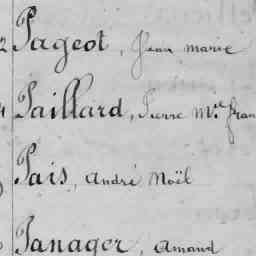 Pageot, Jean marie
Paillard, Pierre Mie fran
Pais, André Noël
Panager, Amand